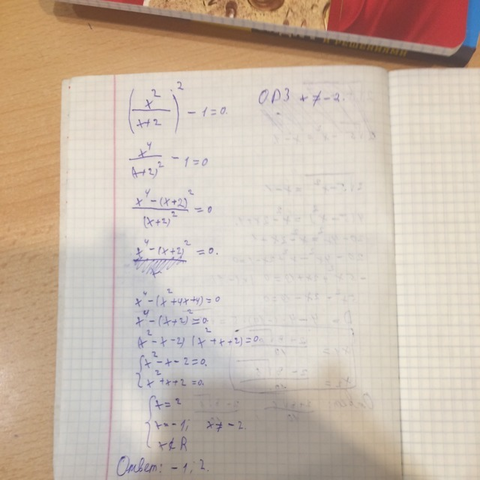 (x²/(x+2))² - 1 = 0. ОДЗ x ≠ -2.
x⁴/(x+2)² - 1 = 0
(x⁴ - (x+2)²)/(x+2)² = 0
x⁴ - (x+2)² = 0.
x⁴ - (x² + 4x + 4) = 0
x⁴ - (x+2)² = 0.
(x² - x - 2)(x² + x + 2) = 0.
{x² - x - 2 = 0.
x² + x + 2 = 0.
{x = 2
x = -1; x ≠ -2.
x ∉ R
Ответ: -1; 2.